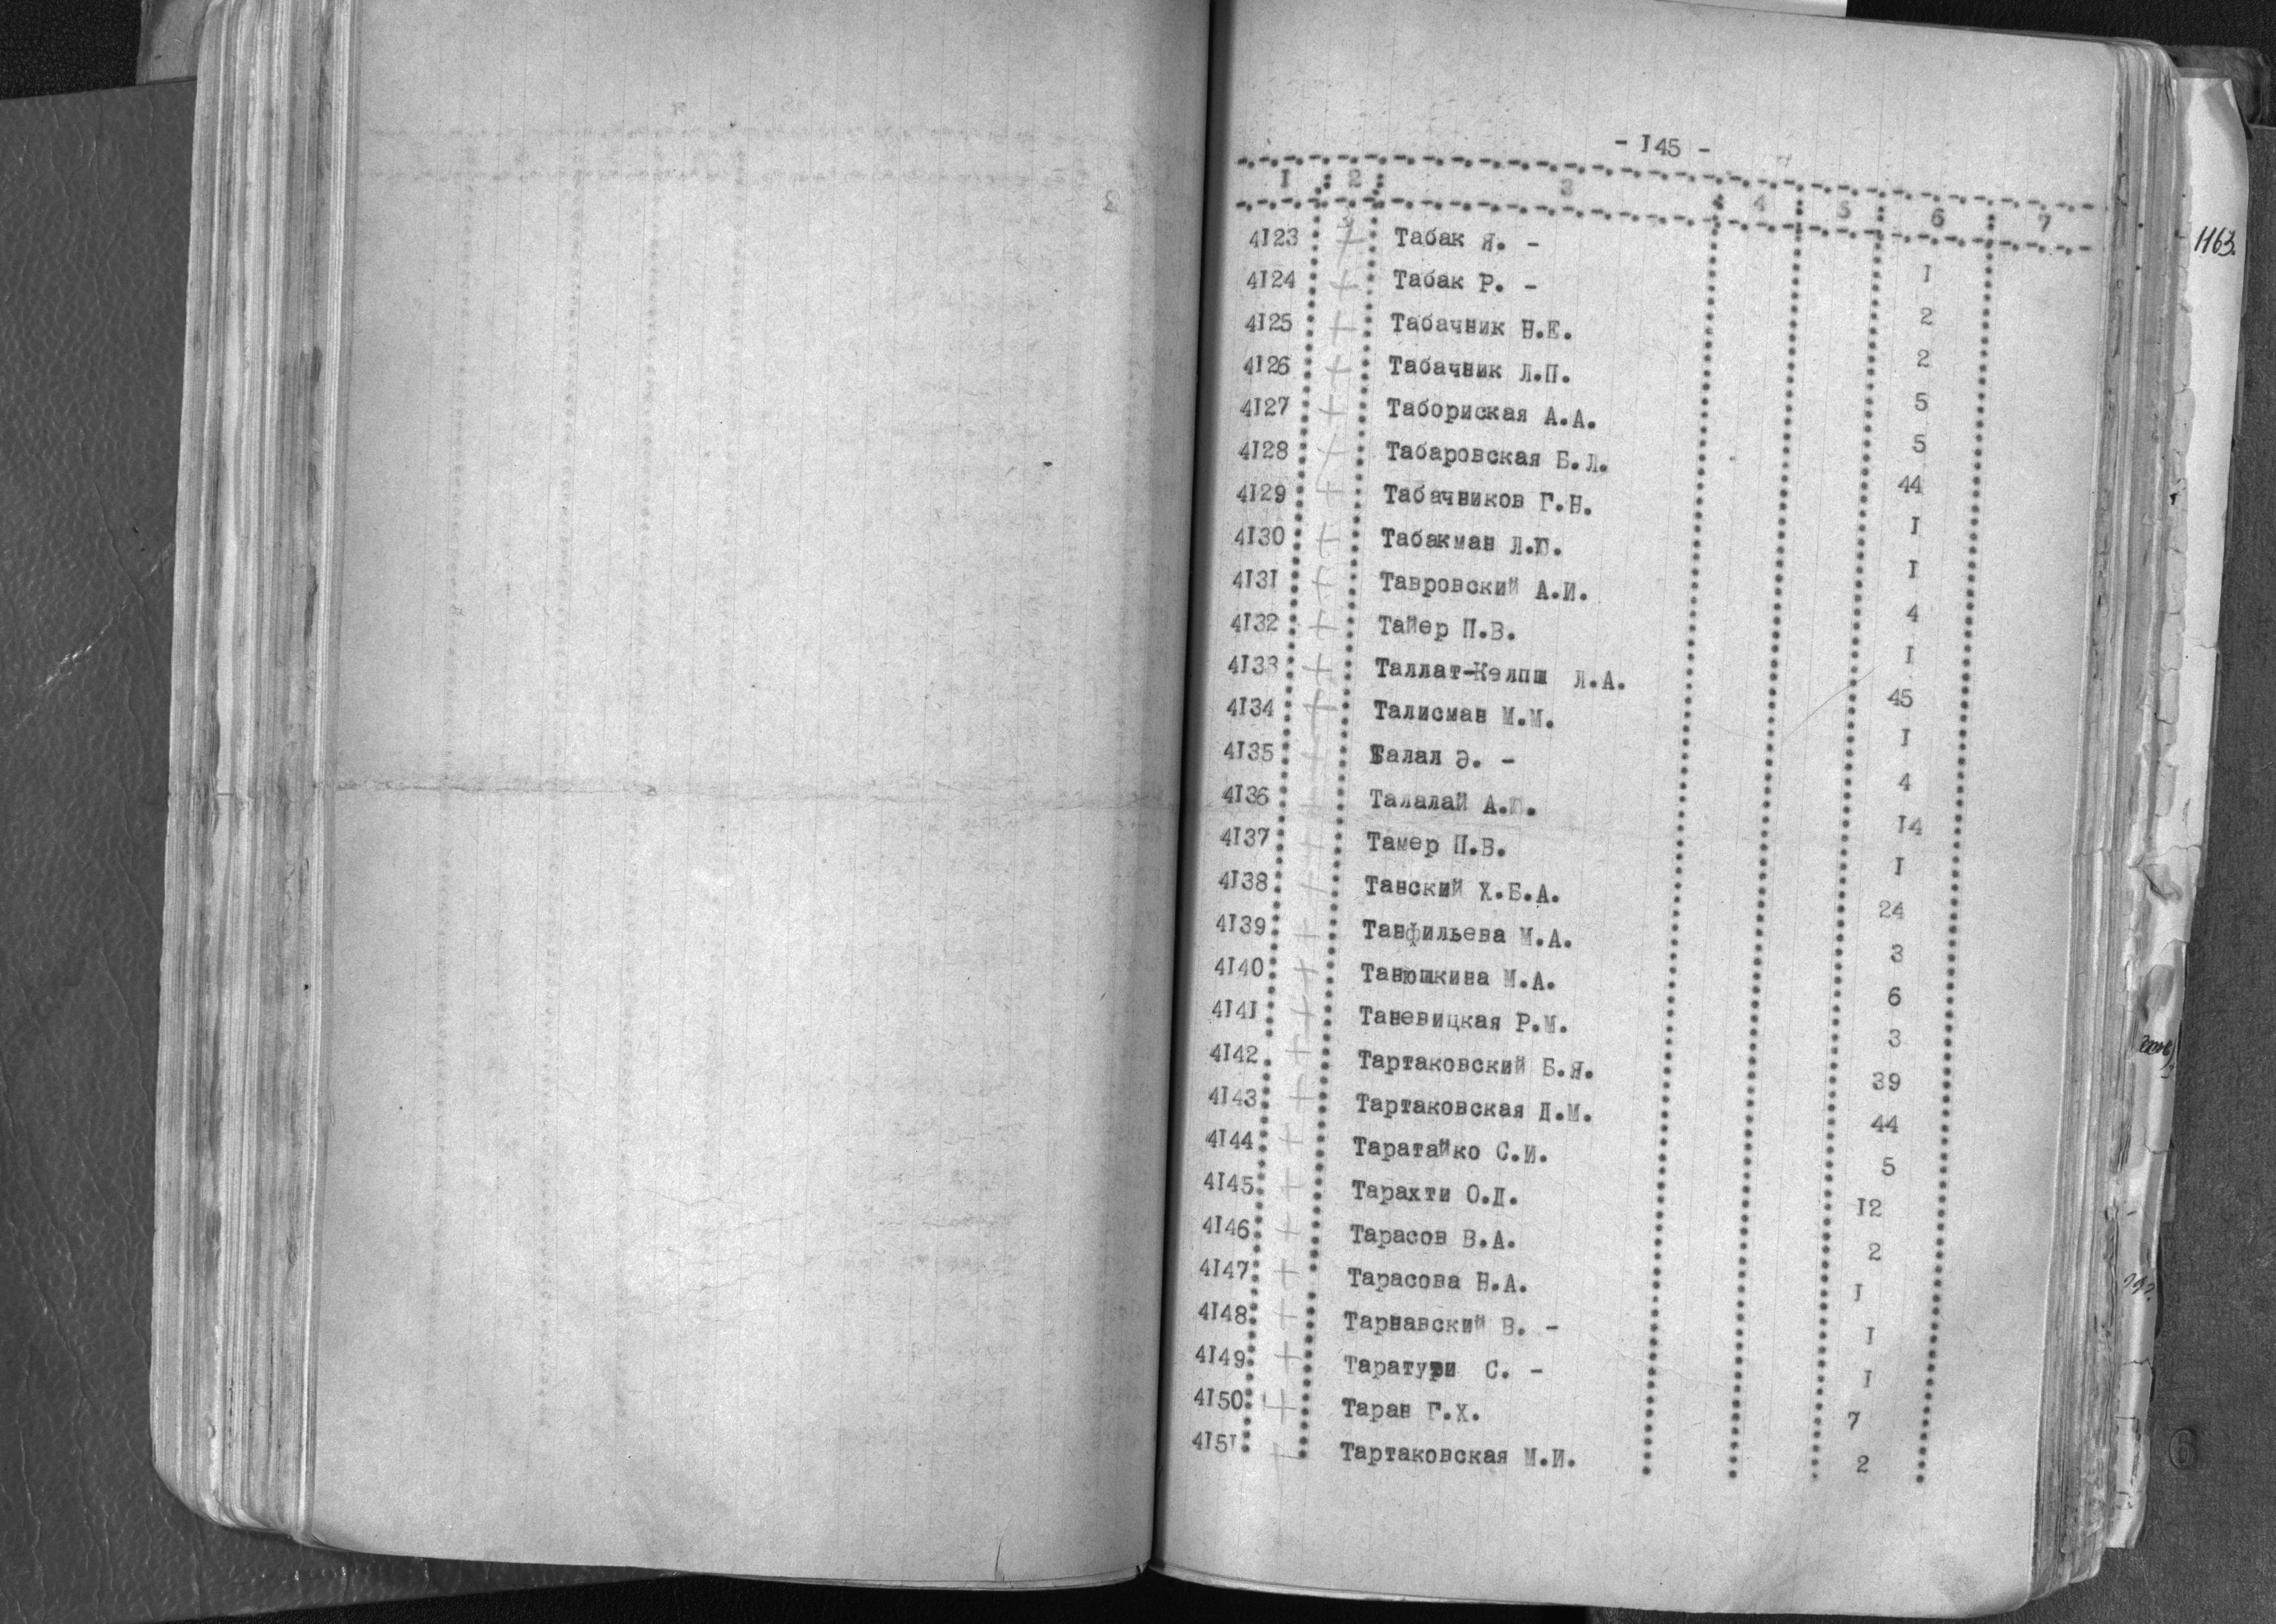 - I45 -
I 2 3 4 5 6 7
II63.
4I23 + Табак Я. - I
4I24 + Табак Р. - 2
4I25 + Табачник Н.Е. 2
4I26 + Табачник Л.П. 5
4I27 + Табориская А.А. 5
4I28 + Табаровская Б.Л. 44
4I29 + Табачников Г.Н. I
4I30 + Табакман Л.Ю. I
4I3I + Тавровский А.И. 4
4I32 + Тайер П.В. I
4I33 + Таллат-Келпш Л.А. 45
4I34 + Талисман М.М. I
4I35 + Талал Э. - 4
4I36 + Талалай А.Ю. I4
4I37 + Тамер П.В. I
4I38 + Танский Х.Б.А. 24
4I39 + Танфильева М.А. 3
4I40 + Танюшкина М.А. 6
4I4I + Таневицкая Р.М. 3
4I42 + Тартаковский Б.Я. 39
4I43 + Тартаковская Д.М. 44
4I44 + Таратайко С.И. 5
4I45 + Тарахти О.Д. I2
4I46 + Тарасов В.А. 2
4I47 + Тарасова Н.А. I
4I48 + Тарнавский В. - I
4I49 + Таратури С. - I
4I50 + Таран Г.Х. 7
4I5I + Тартаковская М.И. 2